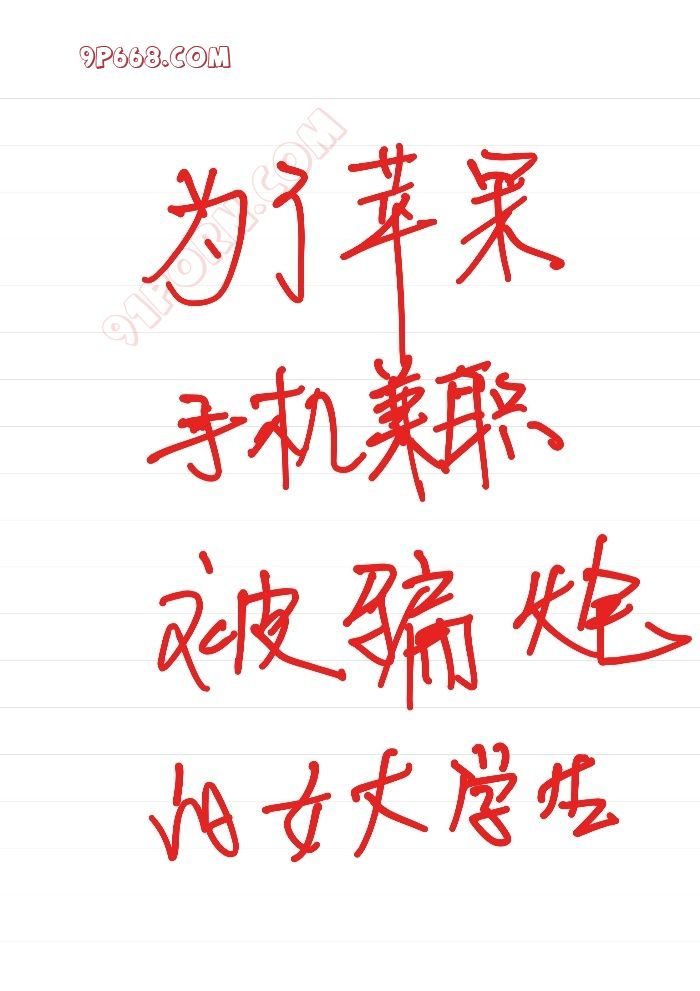 9P668.COM
91PORN.COM
为了苹果
手机兼职
被骗炮
的女大学生